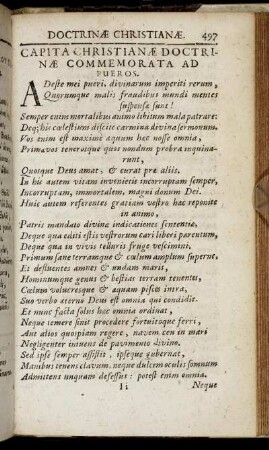 DOCTRINÆ CHRISTIANÆ. 497
CAPITA CHRISTIANÆ DOCTRI-
NÆ COMMEMORATA AD
PUEROS.
ADeste mei pueri, divinarum imperiti rerum,
Quorumque malis fraudibus mundi mentes
suspensæ sunt!
Semper enim mortalibus animo libitum mala patrare:
Deq; his cœlestium discite carmina divina sermonum.
Vos enim est maximè æquum hæc nosse omnia,
Primævos tenerosque quos nondum probra inquina-
runt,
Quoique Deus amat, & curat præ aliis.
In his autem vitam invenietis incorruptam semper,
Incorruptam, immortalem, magni donum Dei.
Huic autem referentes gratiam vestro hæc reponite
in animo,
Patris mandato divinæ indicationes sententiæ,
Deque qua editi estis vestrorum cari liberi parentum,
Deque qua in vivis telluris fruge vescimini.
Primum sane terramque & cœlum amplum supernè,
Et defluentes amnes & undam maris,
Hominumque genus & bestias terram tenentes,
Cœlum volucresque & aquam pisces intra,
Suo verbo æterno Deus est omnia qui condidit.
Et nunc facta solus hæc omnia ordinat,
Neque temere sinit procedere fortuitoque ferri,
Aut alios quospiam regere, navem ceu in mari
Negligenter iniuens de pavimento divino.
Sed ipse semper assistit, ipseque gubernat,
Manibus tenens clavum, neque dulcem oculis somnum
Admittens unquam defessus: potest enim omnia.
Ii Neque